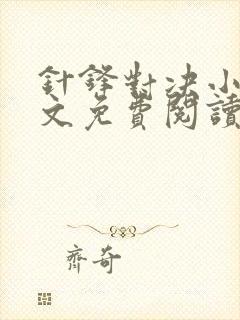 針鋒對决小
文免費閱讀
齊奇